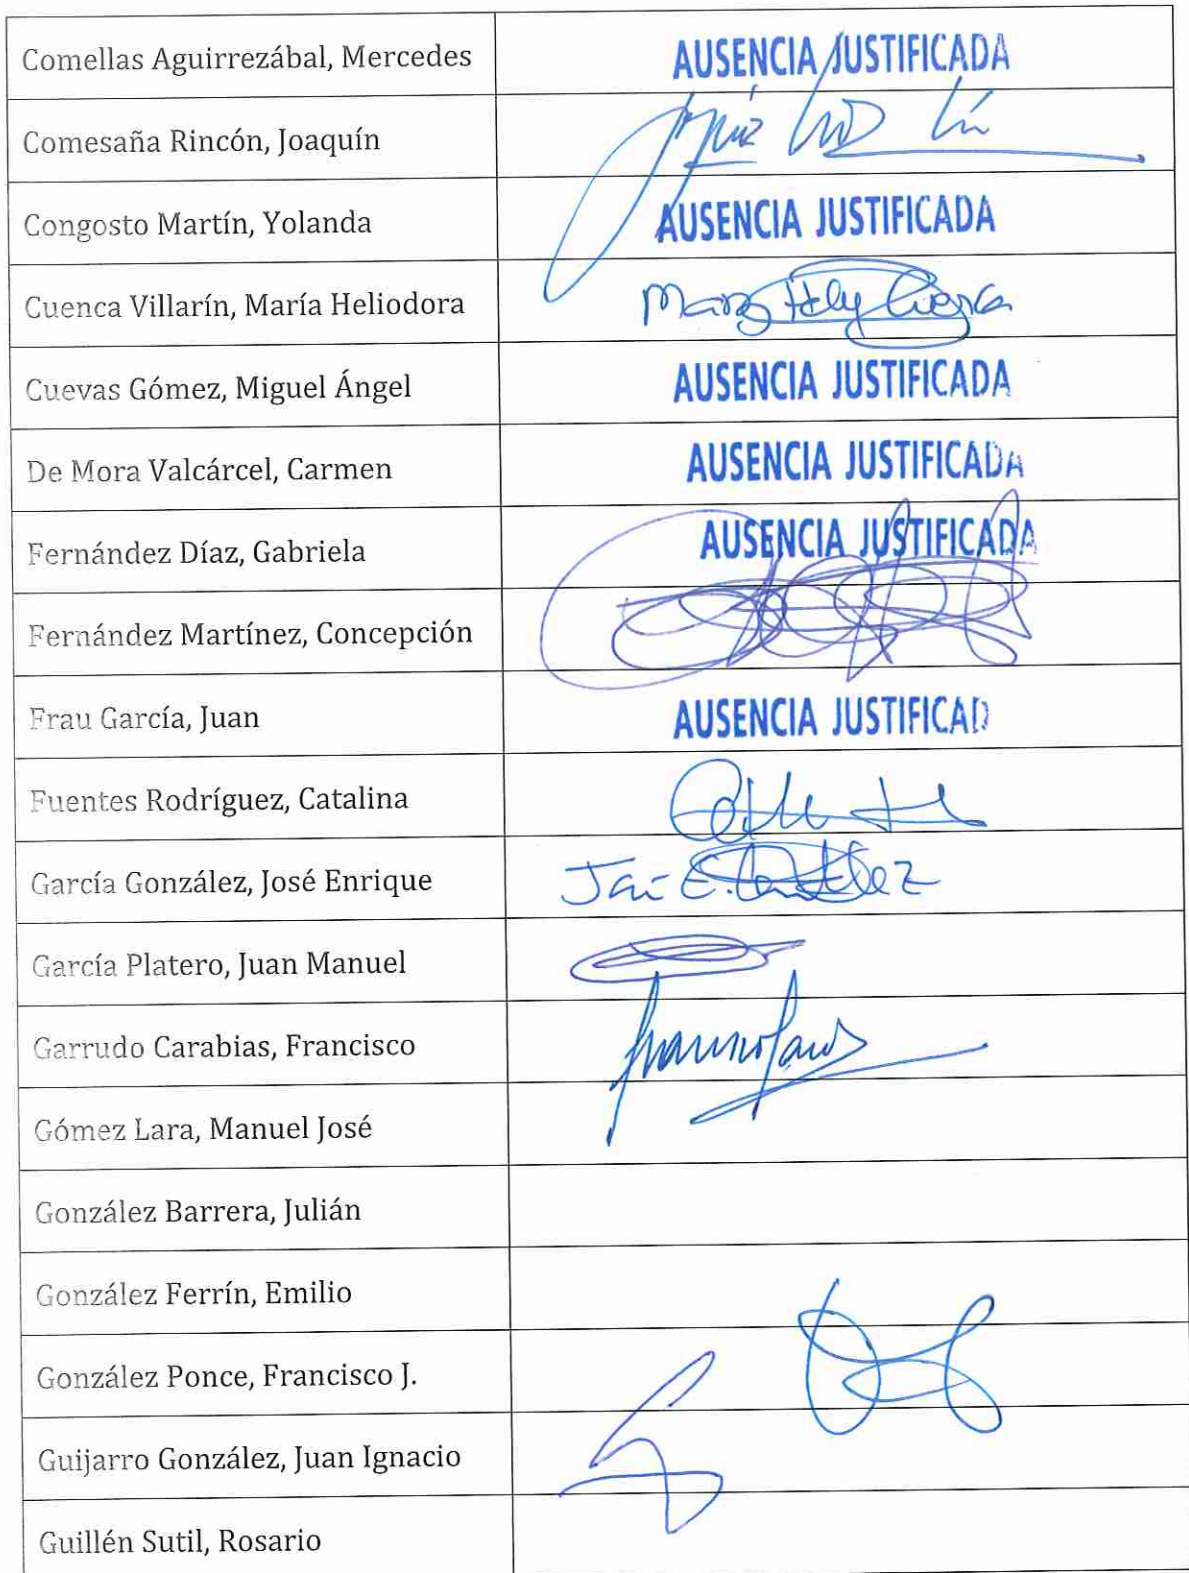 Comellas Aguirrezábal, Mercedes AUSENCIA JUSTIFICADA
Comesaña Rincón, Joaquín
Congosto Martín, Yolanda AUSENCIA JUSTIFICADA
Cuenca Villarín, María Heliodora
Cuevas Gómez, Miguel Ángel AUSENCIA JUSTIFICADA
De Mora Valcárcel, Carmen AUSENCIA JUSTIFICADA
Fernández Díaz, Gabriela AUSENCIA JUSTIFICADA
Fernández Martínez, Concepción
Frau García, Juan AUSENCIA JUSTIFICAD
Fuentes Rodríguez, Catalina
García González, José Enrique
García Platero, Juan Manuel
Garrudo Carabias, Francisco
Gómez Lara, Manuel José
González Barrera, Julián
González Ferrín, Emilio
González Ponce, Francisco J.
Guijarro González, Juan Ignacio
Guillén Sutil, Rosario